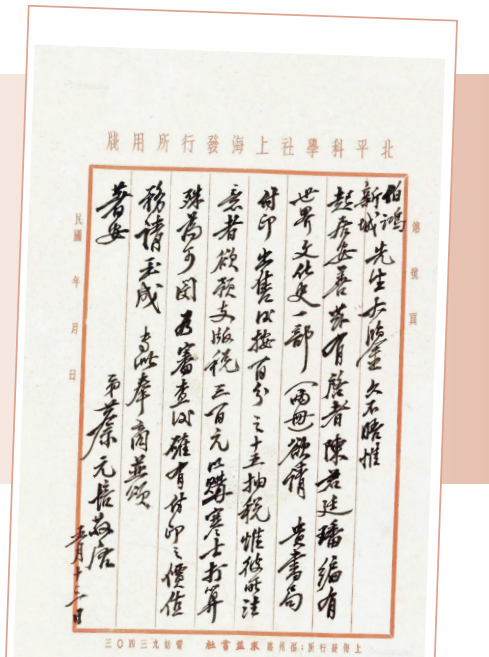 北平科學社上海發行所用牋
第 號 頁
伯鴻
新城先生大鑒久不晤惟
起居安善茲有啓者陳君廷璠編有
世界文化史一部(兩冊)欲請 貴書局
付印出售後按百分之十五抽稅惟彼所注
意者欲預支版稅三百元以購寒士打算
殊為可閔若審查後確有付印之價值
務請玉成 專此奉商並頌
著安
弟蔡元培敬啓
五月十二日
民國 年 月 日
上海發行所:福州路 社 電話九三四〇三